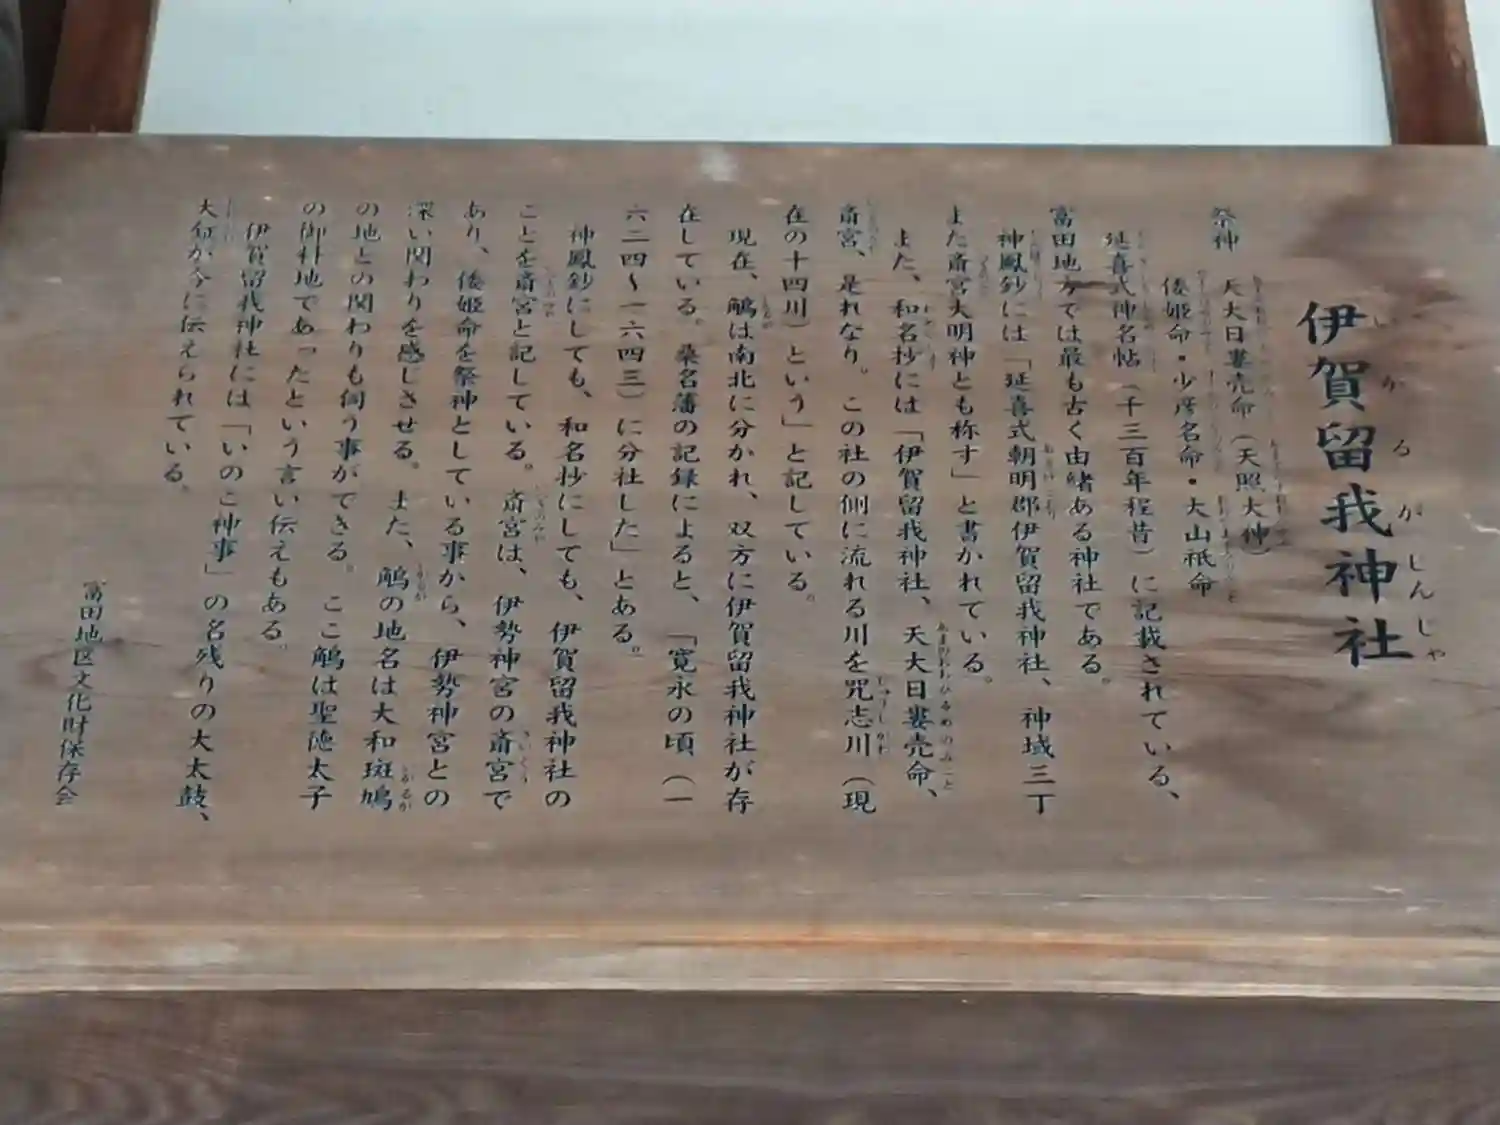 伊賀留我神社
いかるがじんじゃ
祭神 天大日孁売命(天照大神)
倭姫命・少彦名命・大山祇命
延喜式神名帖(千三百年程昔)に記載されている、
富田地方では最も古く由緒ある神社である。
神鳳鈔には「延喜式朝明郡伊賀留我神社、神域三丁
また斎宮大明神とも称す」と書かれている。
また、和名抄には「伊賀留我神社、天大日孁売命、
斎宮、是れなり。この社の側に流れる川を咒志川(現
在の十四川)という」と記している。
現在、鵤は南北に分かれ、双方に伊賀留我神社が存
在している。桑名藩の記録によると、「寛永の頃(一
六二四~一六四三)に分社した」とある。
神鳳鈔にしても、和名抄にしても、伊賀留我神社の
ことを斎宮と記している。斎宮は、伊勢神宮の斎宮で
あり、倭姫命を祭神としている事から、伊勢神宮との
深い関わりを感じさせる。また、鵤の地名は大和斑鳩
の地との関わりも伺う事ができる。ここ鵤は聖徳太子
の御料地であったという言い伝えもある。
伊賀留我神社には「いのこ神事」の名残りの大太鼓、
大 が今に伝えられている。
富田地区文化財保存会